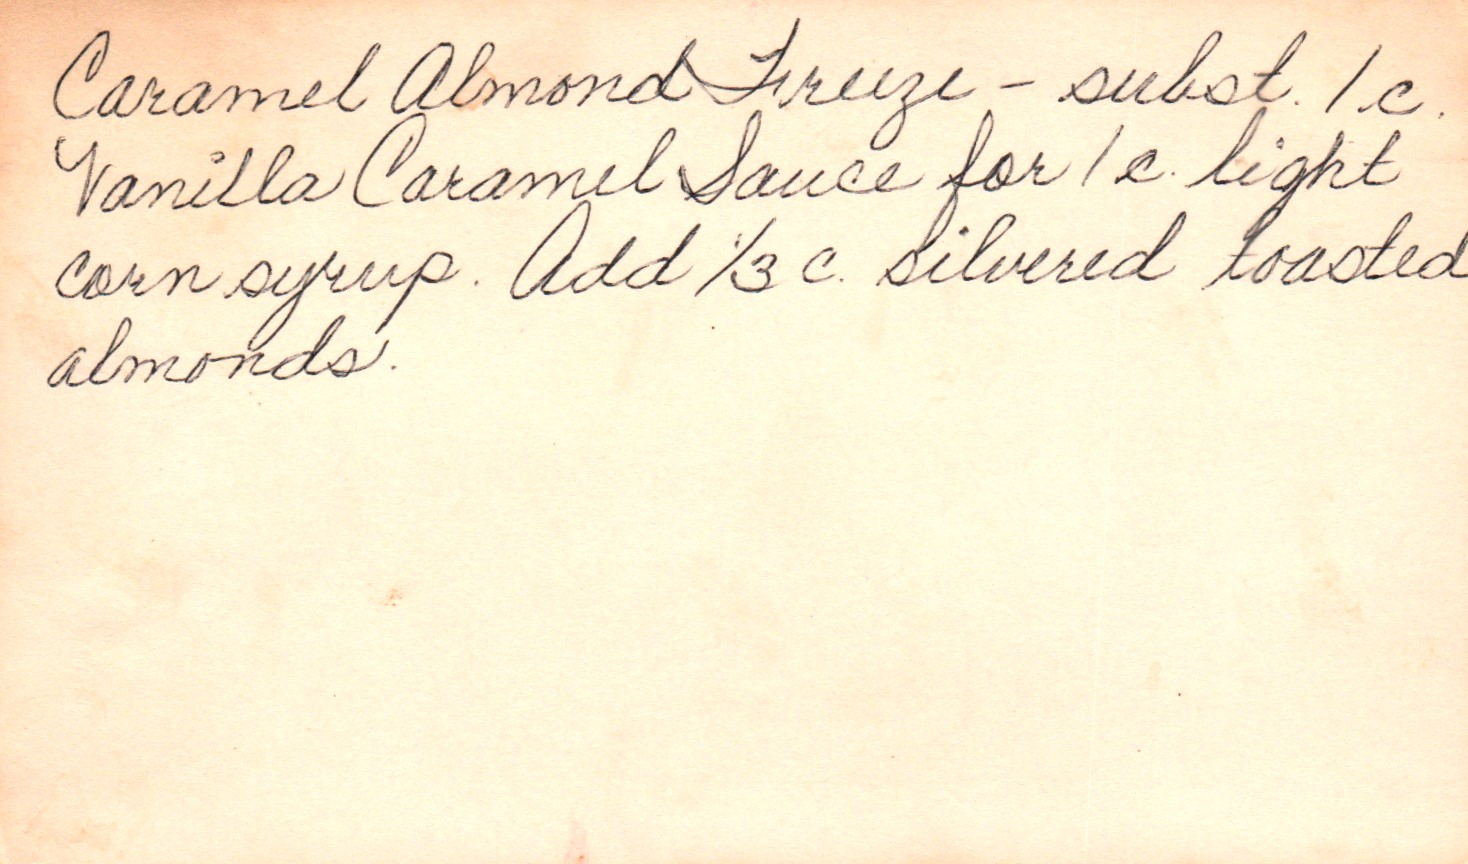 Caramel Almond Freeze - subst. 1 c.
Vanilla Caramel Sauce for 1 c. light
corn syrup. Add 1/3 c. silvered toasted
almonds.